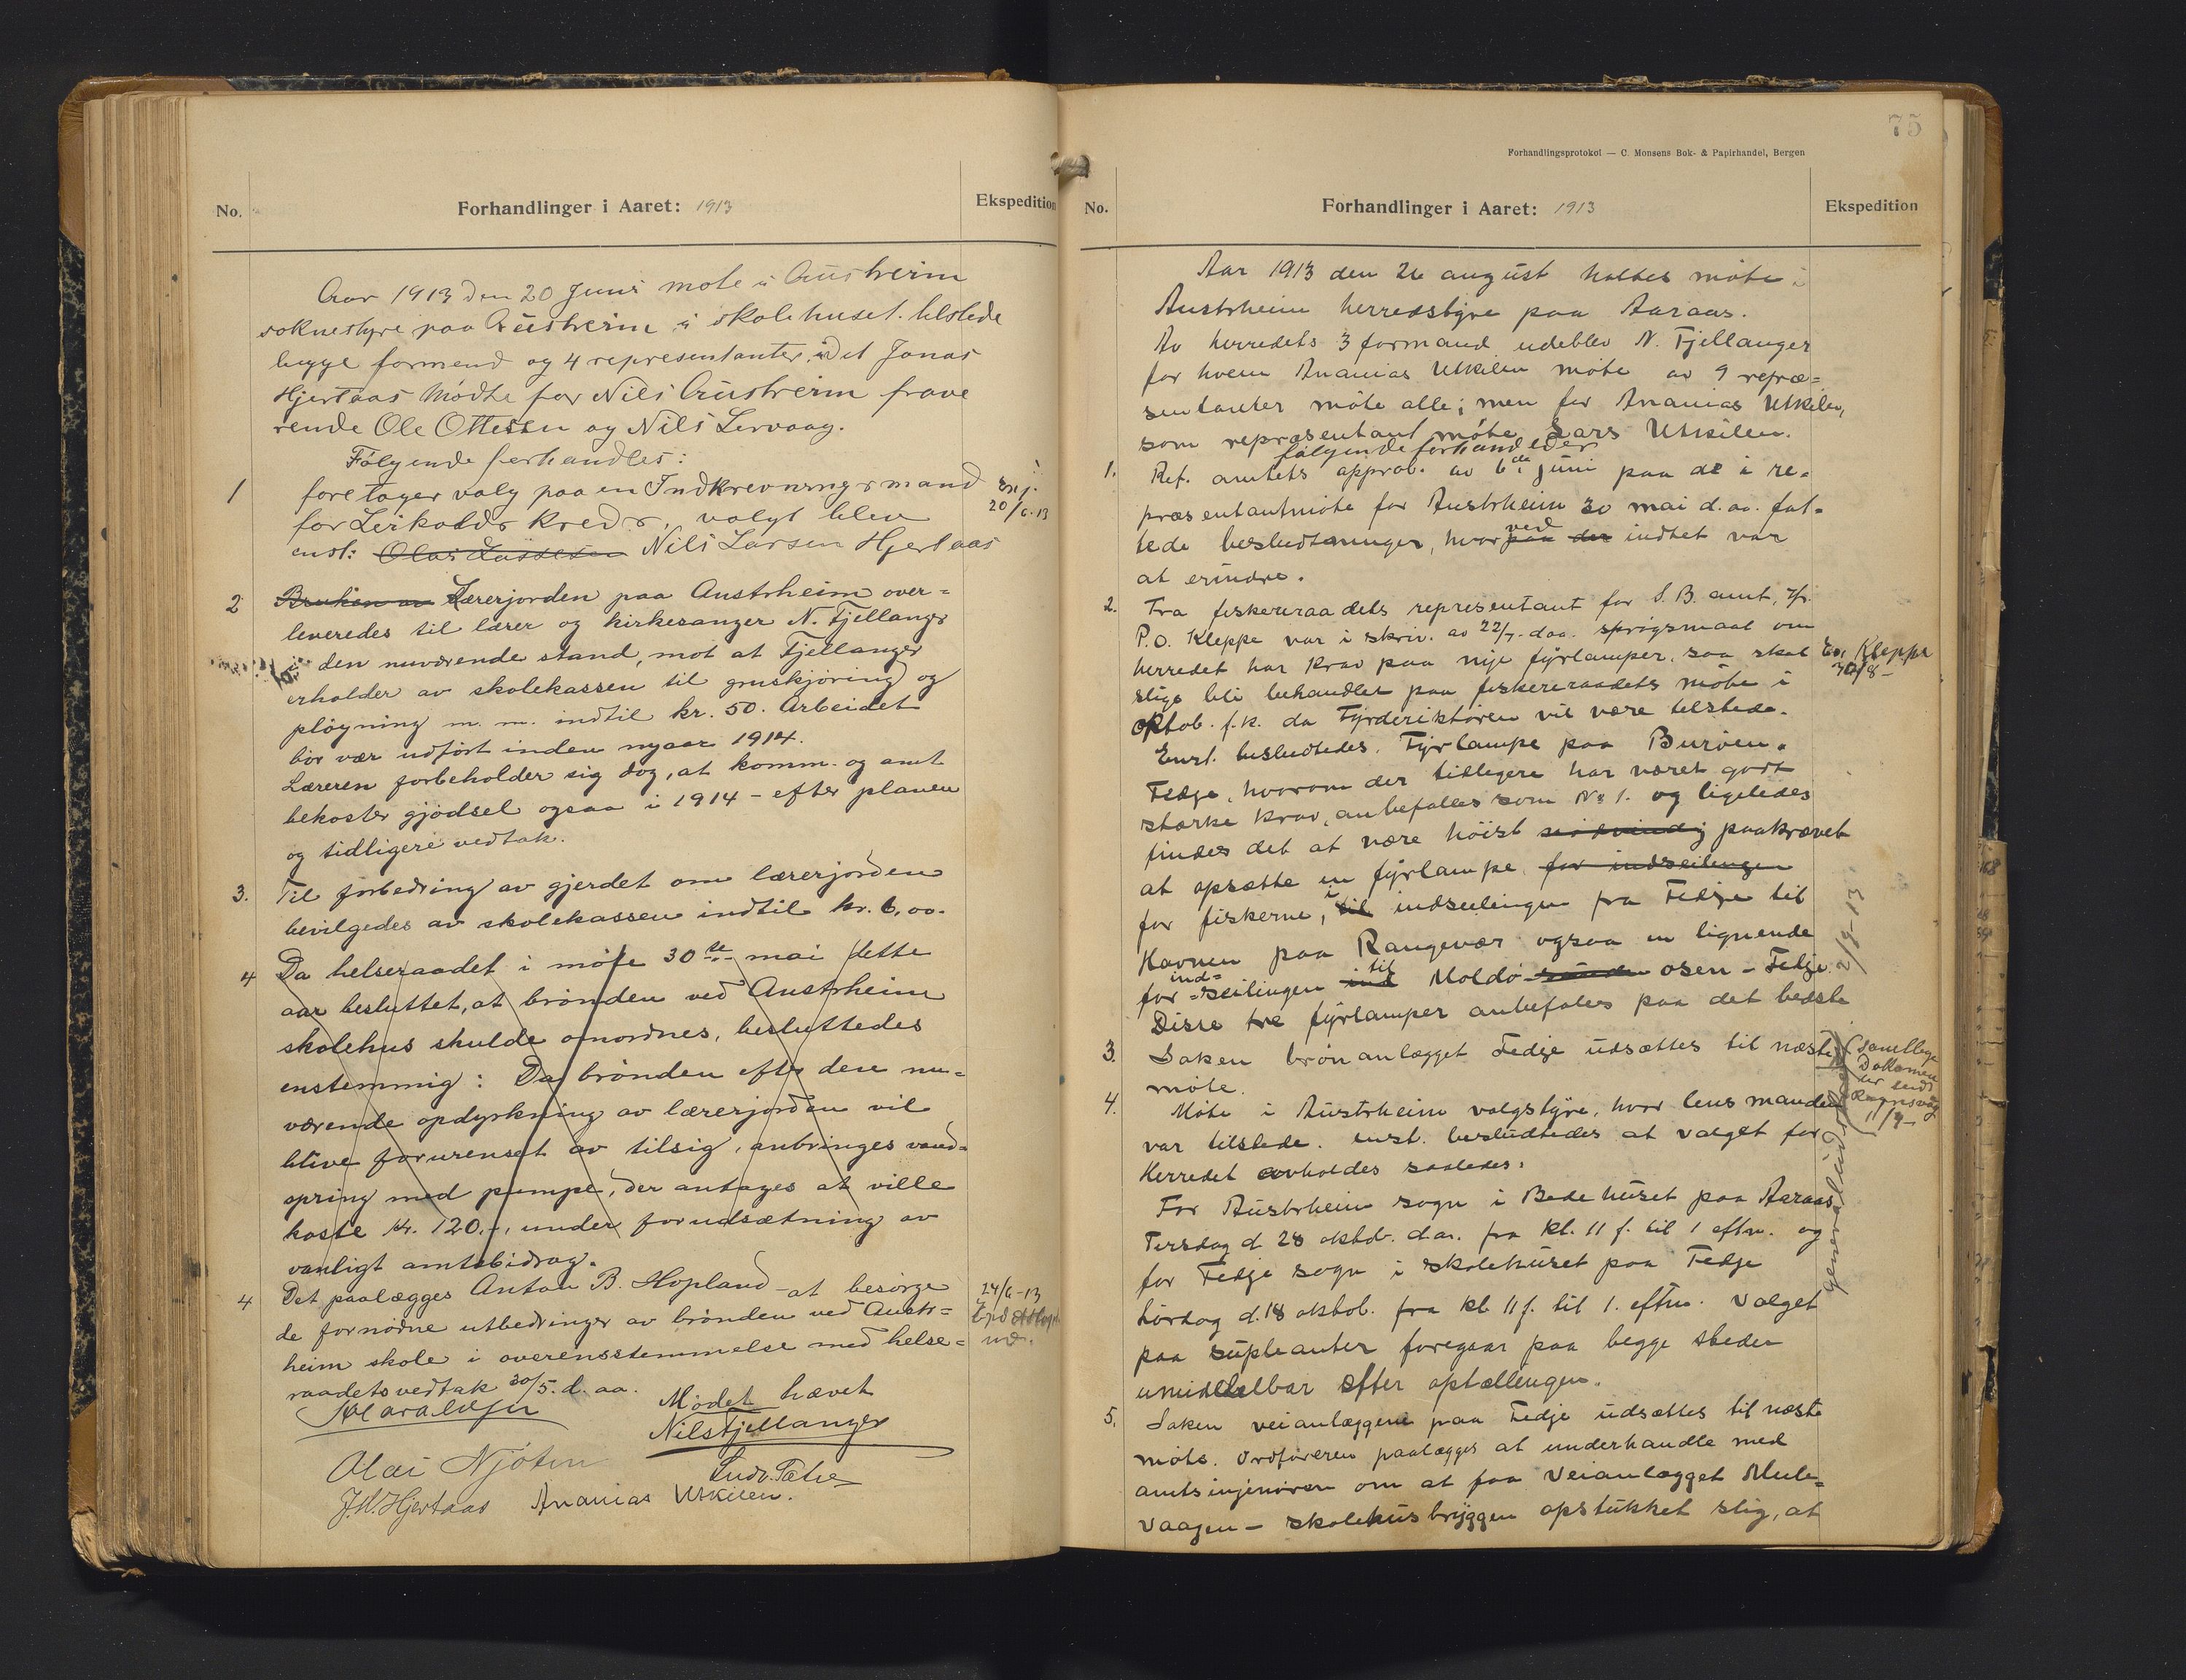 No.
Forhandlinger i Aaret: 1913
Ekspedition
Aar 1913 den 20 Juni møte i Austrheim
soknestyre paa Austrheim i skolehuset. tilstede
begge formend og 4 representanter. idet Jonas
Hjertaas mødte for Nils Austrheim frave
rende Ole Ottesen og Nils Lervaag.
Følgende forhandles:
1 foretager valg paa en Indkrevningsmand
for Leirkolds Kreds, valgt blev
enst: Nils Larsen Hjertaas
20/6.13
2 Bruken av Lærerjorden paa Austrheim over-
leveredes til lærer og kirkesanger N. Fjellanger
i den nuværende stand, mot at Fjellanger
erholder av skolekassen til gruskjøring og
pløygning m. m. indtil kr. 50. Arbeidet
bør vær udført inden nyaar 1914.
Læreren forbeholder sig dog, at komm. og amt
bekoster gjødsel ogsaa i 1914 - efter planen
og tidligere vedtak.
3. Til forbedring av gjerdet om lærerjorden
bevilgedes av skolekassen indtil kr. 6,00.
4 Da helseraadet i møte 30te mai dette
aar besluttet, at brønden ved Austrheim
skolehus skulde omordnes, besluttedes
enstemmig: Da brønden efter den nu-
værende opdyrkning av lærerjorden vil
blive forurenset av tilsig, anbringes vand-
spring med pumpe, der antages at ville
koste kr. 120.-, under forudsætning av
vanligt amtsbidrag.
4 Det paalægges Anton B. Hopland at besørge
de fornødne utbedringer av brønden ved Austr-
heim skole i overensstemmelse med helse-
raadets vedtak 30/5. d. aa.
24/6-13
Mødet hævet
Nils Fjellanger
Olai Njøten
J.W. Hjertaas Ananias Utkilen.
75
Forhandlingsprotokol — C. Monsens Bok- & Papirhandel, Bergen
No.
Forhandlinger i Aaret: 1913
Ekspedition
Aar 1913 den 26 august holtes møte i
Austrheim herredstyre paa Aaraas.
Av herredets 3 formand udeblev N. Fjellanger
for hvem Ananias Utkilen møte av 9 repræ-
sentanter møte alle; men for Ananias Utkilen,
som repræsentant møte Lars Utkilen.
følgende forhandleder
1. Ref. amtets approb. av 6te juni paa de i re-
præsentantmøte for Austrheim 30 mai d. aa. fat-
tede besludtninger, hvor paa ved der indtet var
at erindre.
2. Fra fiskeriraadets representant for S. B. amt, hr.
P. O. Kleppe var i skriv. av 22/7. d.aa. sprøgsmaal om
herredet har krav paa nye fyrlamper, saa skal
slige bli behandlet paa fiskeriraadets møte i
oktob. f.k. da Fyrderiktøren vil være tilstede.
Enst. besludtedes. Fyrlampe paa Burøen.
Fedje, hvorom der tidligere har været gjort
stærke krav, anbefalles som No 1. og ligeledes
findes det at være høist nødvendig paakrævet
at opsætte en fyrlampe for indseilingen
for fiskerne, til i indseilingen fra Fedje til
Havnen paa Rangevær ogsaa en lignende
for ind-seilingen ind til Moldø sunden osen - Fedje.
Disse tre fyrlamper anbefales paa det bedste
Kleppe
30/8-
3. Saken brønanlægget Fedje udsættes til næste
møte.
4. Møte i Austrheim valgstyre, hvor lensmanden
var tilstede. enst. besludtedes at valget for
Herredet avholdes saaledes:
For Austrheim sogn i Bedehuset paa Aaraas
Tirsdag d 28 oktob. d.a. fra kl. 11 f. til 1 eftm. og
for Fedje sogn i skolehuset paa Fedje
Lørdag d. 18 oktob. fra kl 11 f. til 1. eftm. Valget
paa supleanter foregaar paa begge steder
umiddelbar efter optællingen.
2/9-13
11/9-
5. Saken veianlæggene paa Fedje udsættes til næste
møte. Ordføreren paalægges at underhandle med
amtsinjeniøren om at faa Veianlægget Mule-
vaagen - skolehusbryggen opstukket slig, at